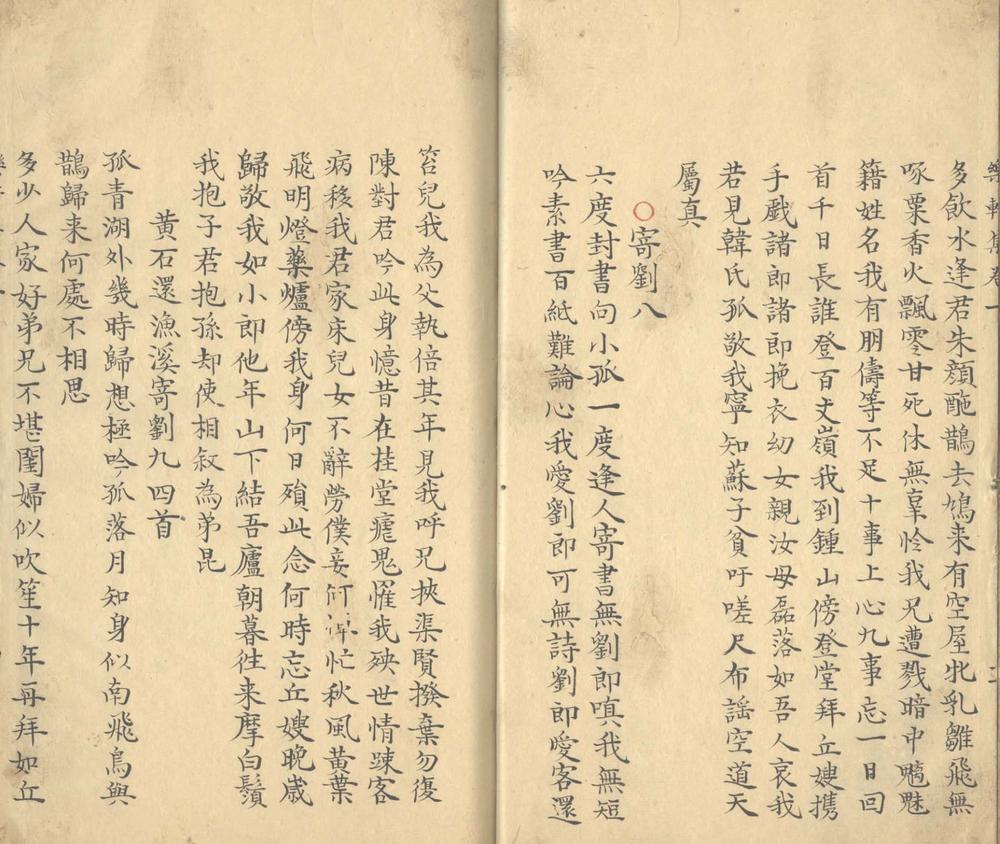 樂軒集卷一
多飲水逢君朱顏酏鵲去鳩来有空屋牝乳雛飛無
啄粟香火飄零甘死休無辜怜我兄遭戮暗中魑魅
籍姓名我有朋儔等不足十事上心九事忘一日回
首千日長誰登百丈嶺我到鍾山傍登堂拜丘嫂攜
手戲諸郎諸郎挽衣幼女親汝母磊落如吾人哀我
若見韓氏孤敬我寧知蘇子貧吁嗟尺布謡空道天
屬真
○寄劉八
六度封書句小孤一度逢人寄書無劉郎嗔我無短
吟素書百紙難論心我愛劉郎可無詩劉郎愛客還
笞兒我為父執倍其年見我呼兄挾渠賢撥棄勿復
陳對君吟此身憶昔在桂堂瘧鬼㒰我殃世情踈客
病移我君家床兒女不辭勞僕妾忙秋風黃葉
飛明燈藥爐傍我身何日殞此念何時忘丘嫂晚歲
歸敬我如小郎他年山下結吾廬朝暮往来摩白鬚
我抱子君抱孫却使相叙為弟昆
黃石還漁溪寄劉九四首
孤青湖外幾時歸想極吟孤落月知身似南飛烏與
鵲歸来何處不相思
多少人家好弟兄不堪閨婦似吹笙十年再拜如丘